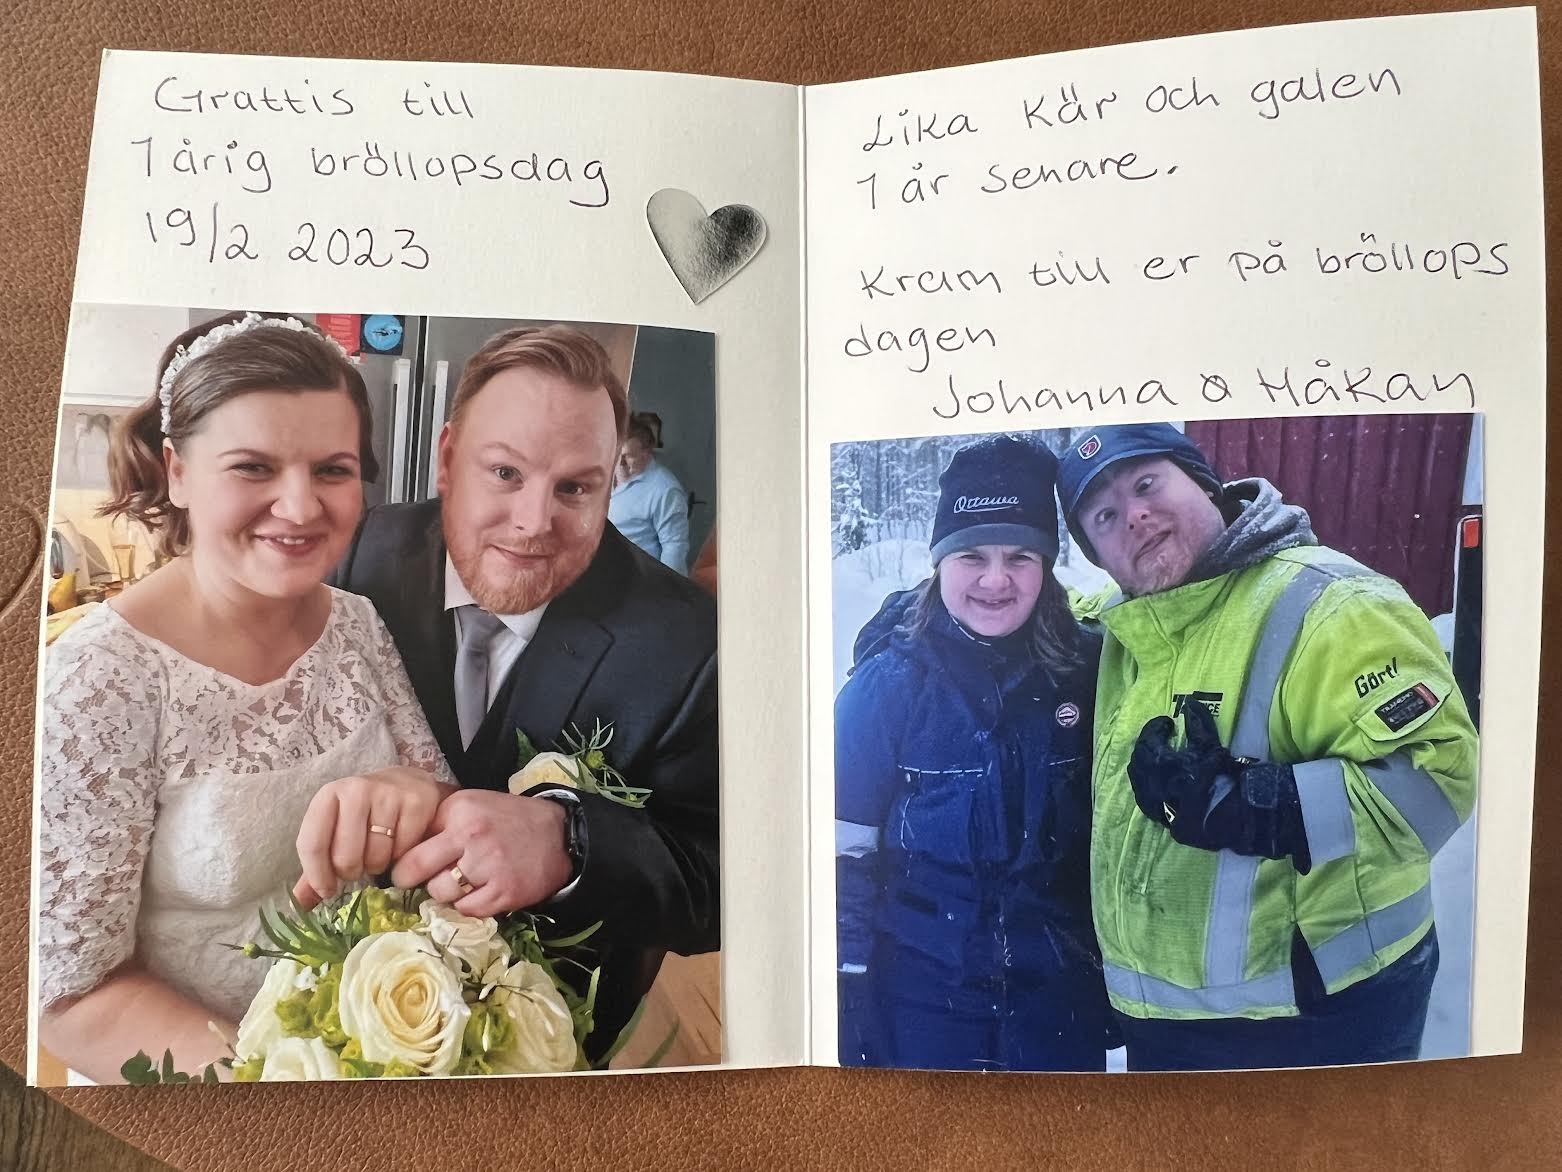 Grattis till
1 årig bröllopsdag
19/2 2023
Lika kär och galen
1 år senare.
Kram till er på bröllops
dagen
Johanna & Håkan
Ottawa
Gört!